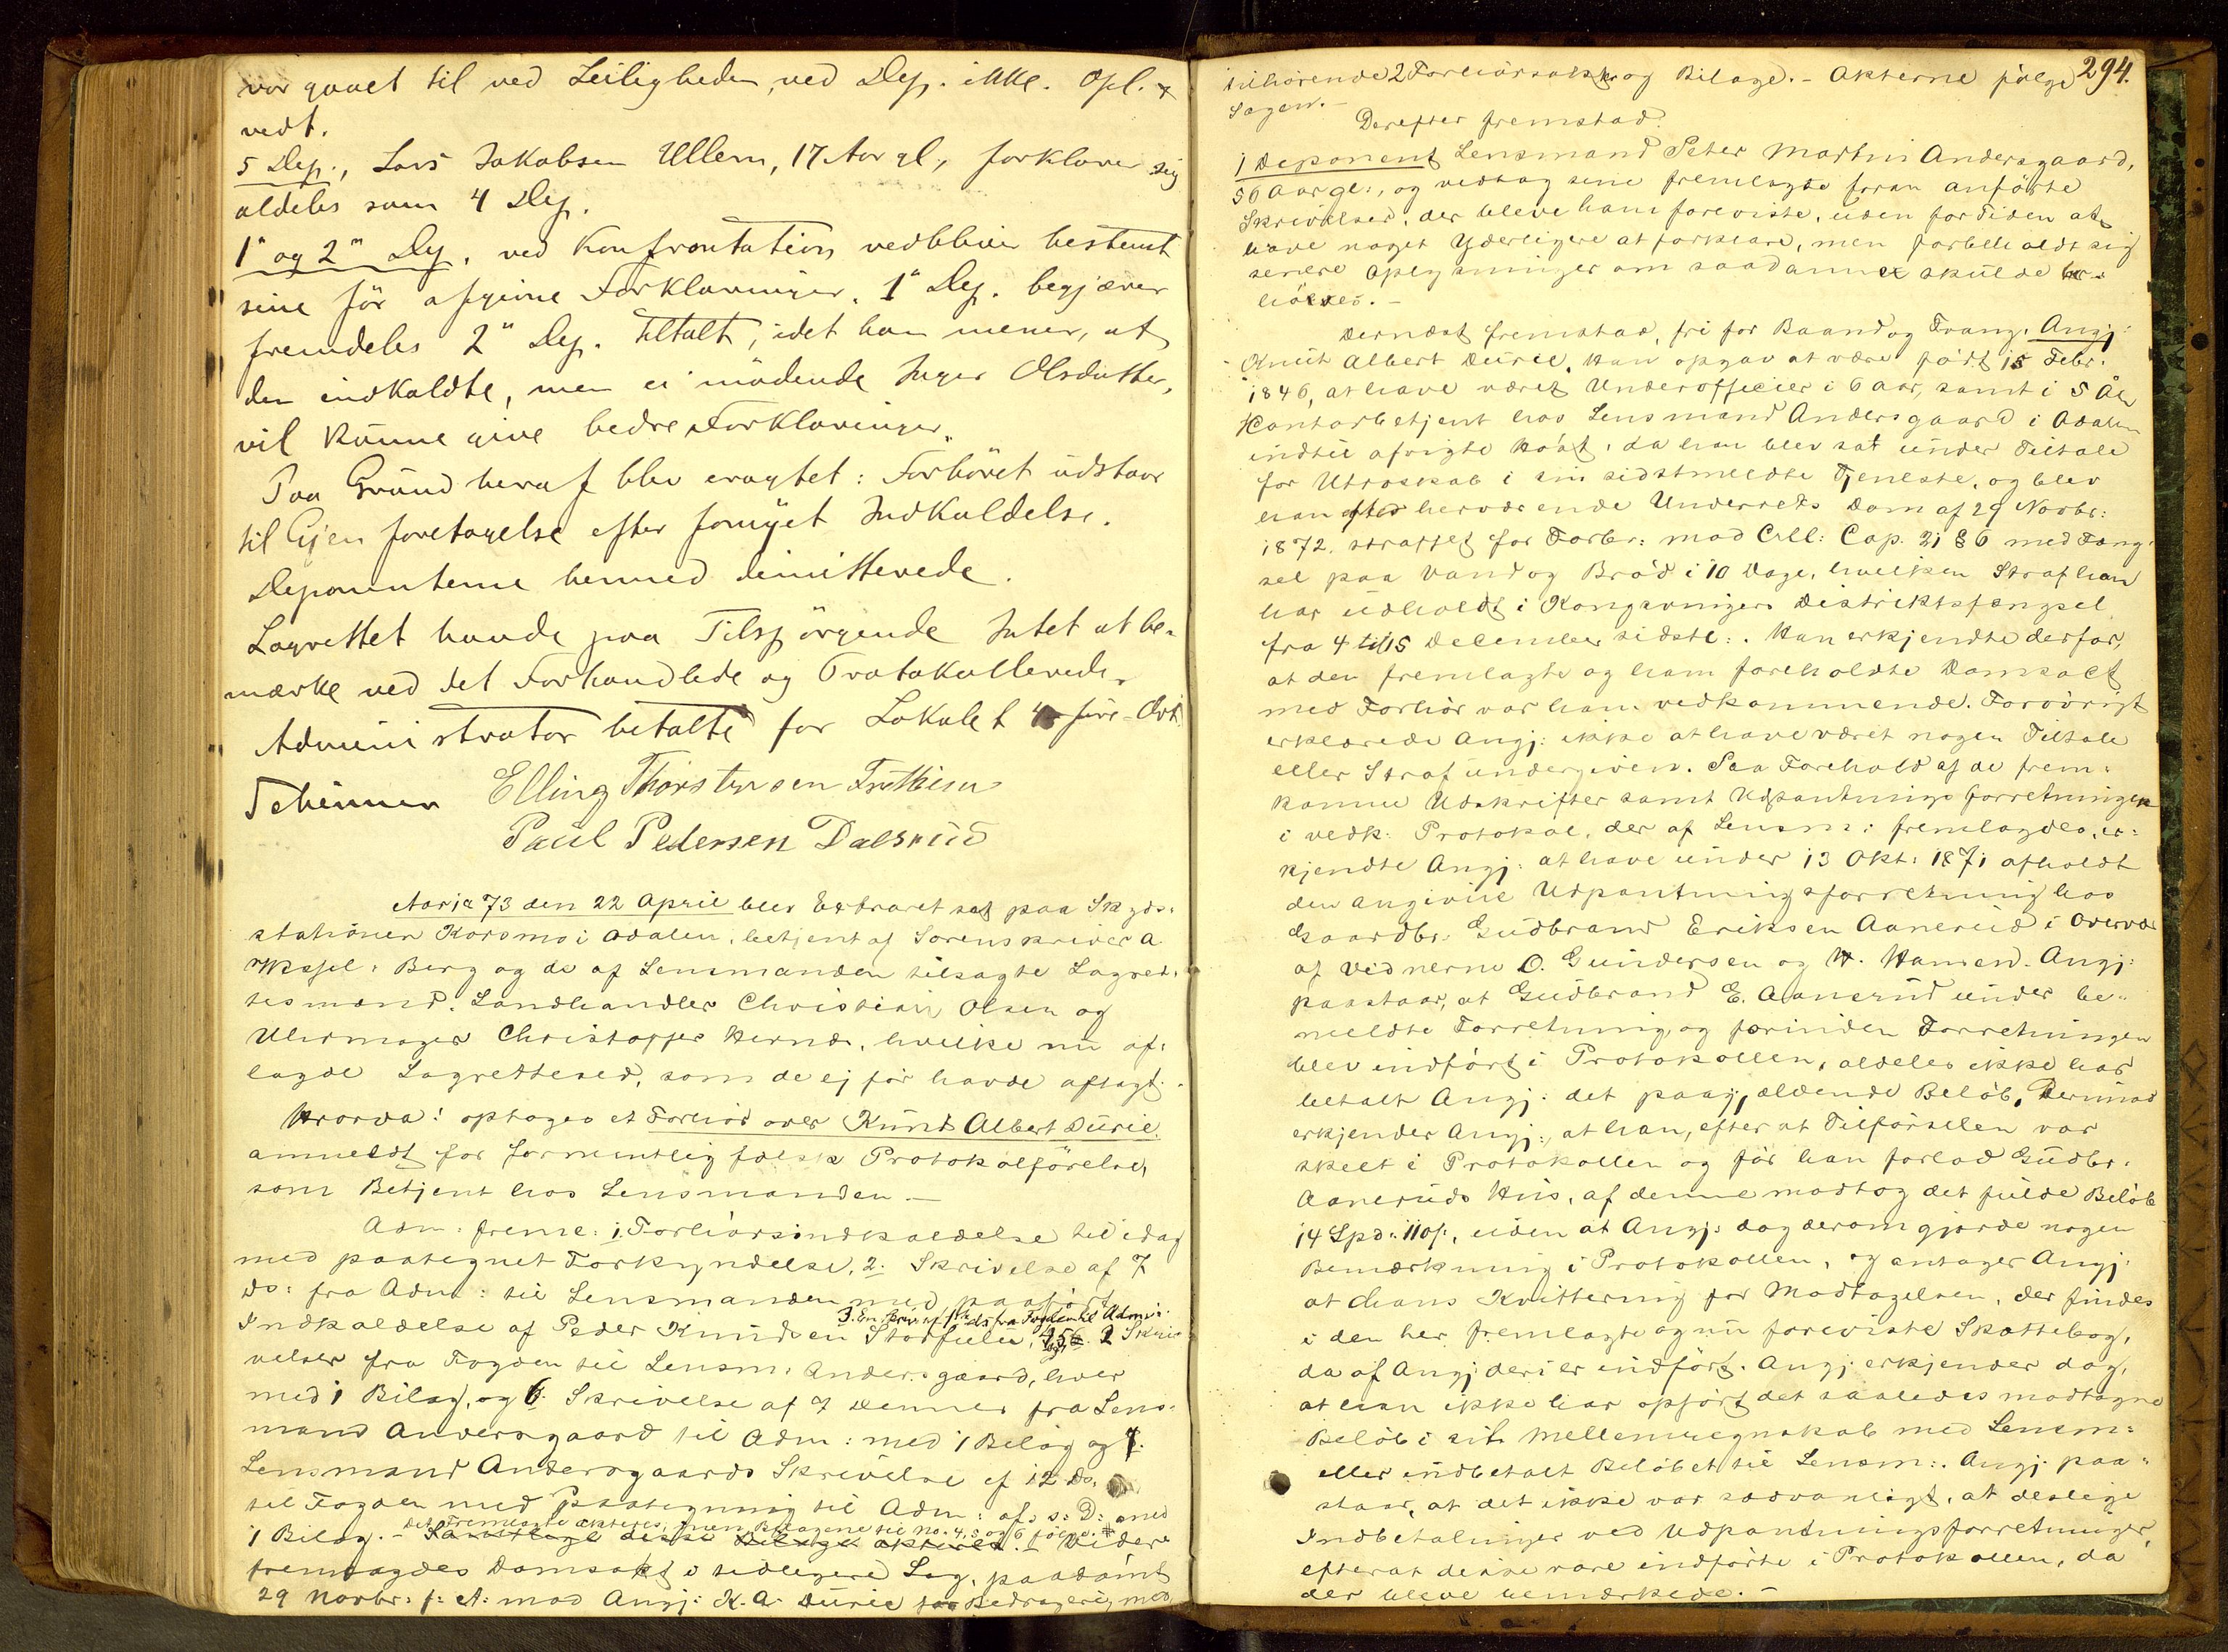 var gaaet til ved Leiligheden, ved Dep. ikke. Opl. &
vedt.
5 Dep., Lars Jakobsen Ullern, 17 Aar gl., forklarer sig
aldeles som 4 Dep.
1" og 2" Dep. ved Konfrontation vedbliver bestemt
sine för afgivne Forklaringer. 1" Dep. begjærer
fremdeles 2" Dep. tiltalt, idet han mener, at
den indkaldte, men ei mödende Inger Olsdatter,
vil kunne give bedre Forklaringer.
Paa Grund heraf blev eragtet: Forhöret udstaar
til Gjen foretagelse efter fornyet Indkaldelse.
Deponenterne hermed dimitterede.
Lagrettet havde paa Tilspörgende Intet at be-
mærke ved det Forhandlede og Protokollerede.
Administrator betalte for Lokalet
Elling Thorstensen
Paul Pedersen Dalsrud
Aar 1873 den 22 April blev Extraret sat paa Skyds-
stationen Korsmo i Odalen, betjent af Sorenskriver
Berg og de af Lensmanden tilsagte Lagret-
tesmænd: Landhandler Christian Olsen og
Uhrmager Christoffer Hernæs, hvilke nu af-
lagde Lagretteed, som de ej för havde aflagt.
Hvorda: optoges et Forhör over Knud Albert Dürie,
anmeldt for formentlig falsk Protokolförelse,
som Betjent hos Lensmanden —
Adm: freml: 1. Forhörsindkaldelse til idag
med paategnet Forkyndelse, 2. Skrivelse af 7
ds: fra Adm: til Lensmanden med paaført
3. En Skriv. af ds fra Fogden til Admi.
Indkaldelse af Peder Knudsen Storfulu, 4 5 2 Skri-
velser fra Fogden til Lensm: Andersgaard, hver
med 1 Bilag, og 6. Skrivelse af 7 dennes fra Lens-
mand Andersgaard til Adm: med 1 Bilag og 7.
Lensmand Andersgaards Skrivelse af 12 ds.
til Fogden med Paategning til Adm: af s: D: med
det Fremlagte akteres, men Bilagene til No. 4, 5 og 6 følge.
1 Bilag. – Samtlige disse Bilage akteres. – Videre
fremlagdes Domsakt i tidligere Sag, paadömt
29 Novbr: f: A: mod Angj: K. A. Dürie for Bedrageri, med
294.
tilhörende 2 Forhörsakter og Bilage. – Akterne fölge
Sagen. –
Derefter fremstod
1 Deponent Lensmand Peter Martin Andersgaard,
56 Aar gl:, og vedtog sine fremlagte foran anförte
Skrivelser, der bleve ham foreviste, uden for Tiden at
have noget Yderligere at forklare, men forbeholdt sig
senere Oplysninger om saadanne skulde be-
höves. –
Dernæst fremstod, fri for Baand og Tvang, Angj:
Knut Albert Dürie. Han opgav at være födt 15 Febr:
1846, at have været Underofficier i 6 Aar, samt i 5 År
Kontorbetjent hos Lensmand Andersgaard i Odalen
indtil afvigte Höst, da han blev sat under Tiltale
for Utroskab i sin sidstmeldte Tjeneste, og blev
han ved herværende Underrets Dom af 29 Novbr:
1872, straffet for Forbr: mod Crll: Cap. 21 § 6 med Fæng-
sel paa Vand og Bröd i 10 Dage, hvilken Straf han
har udholdt i Kongsvingers Distriktsfængsel
fra 4 til 15 December sidstl:. Han erkjendte derfor,
at den fremlagte og ham foreholdte Domsact
med Forhör var ham vedkommende. Forövrigt
erklærede Angj: ikke at have været nogen Tiltale
eller Straf undergiven. Paa Forehold af de frem-
komne Udskrifter samt Udpantnings forretningen
i vedk: Protokol, der af Lensm: fremlagdes, er-
kjendte Angj: at have under 13 Okt: 1871 afholdt
den angivne Udpantningsforretning hos
Gaardbr: Gudbrand Eriksen Aanerud i Overvær
af Vidnerne O. Gundersen og H. Hansen. Angj:
paastaar, at Gudbrand E. Aanerud under be-
meldte Forretning, og forinden Forretningen
blev indfört i Protokollen, aldeles ikke har
betalt Angj: det paagjældende Belöb. Derimod
erkjender Angj:, at han, efter at Tilförselen var
skeet i Protokollen og för han forlod Gudbr:
Aaneruds Hus, af denne modtog det fulde Belöb
14 Spd: 110 /:, uden at Angj: dog derom gjorde nogen
Bemærkning i Protokollen, og antager Angj:
at hans Kvittering for Modtagelsen, der findes
i den her fremlagte og nu foreviste Skattebog,
da af Angj deri er indfört. Angj: erkjender dog,
at han ikke har opfört det saaledes modtagne
Belöb i sit Mellemregnskab med Lensm:
eller indbetalt Belöbet til Lensm:. Angj: paa-
staar, at det ikke var sædvanligt, at deslige
Indbetalinger ved Udpantningsforretninger,
efterat disse vare indförte i Protokollen, da
der bleve bemærkede. –